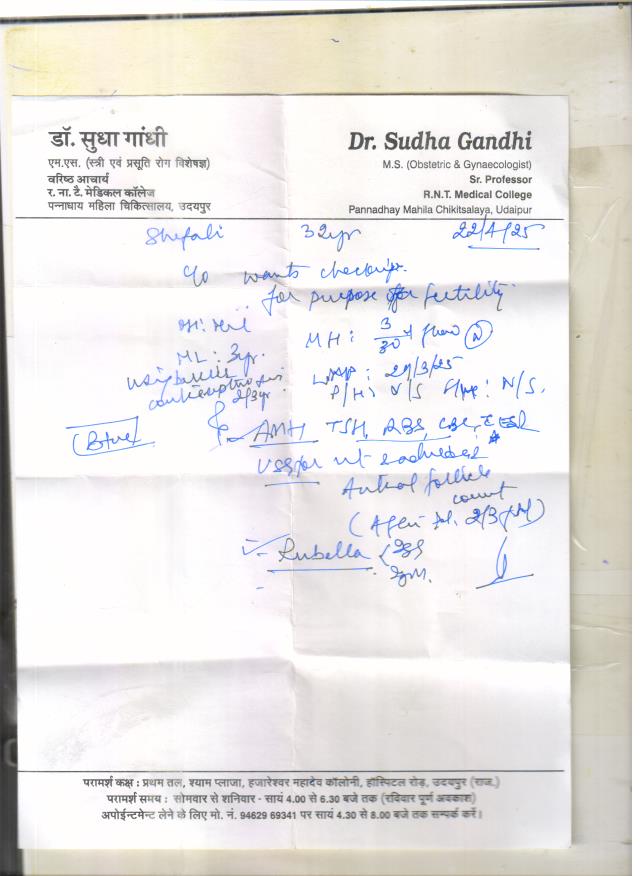 डॉ. सुधा गांधी
एम.एस. (स्त्री एवं प्रसूति रोग विशेषज्ञ)
वरिष्ठ आचार्य
र. ना. टै. मेडिकल कॉलेज
पन्नाधाय महिला चिकित्सालय, उदयपुर
Dr. Sudha Gandhi
M.S. (Obstetric & Gynaecologist)
Sr. Professor
R.N.T. Medical College
Pannadhay Mahila Chikitsalaya, Udaipur
Shefali 32yr 22/4/25
c/o wants checkup.
for purpose of fertility.
MH: 3/30 flow N
ML: 3yr.
LMP: 29/3/25
using
P/H: N/S F/H: N/S.
2/3yr.
B+ve
AMH TSH, RBS, CBC,
USG for ut
Antral follicle
count
2/3
Rubella IgG
IgM.
परामर्श कक्ष : प्रथम तल, श्याम प्लाजा, हजारेश्वर महादेव कॉलोनी, हॉस्पिटल रोड़, उदयपुर (राज.)
परामर्श समय : सोमवार से शनिवार - सायं 4.00 से 6.30 बजे तक (रविवार पूर्ण अवकाश)
अपोईन्टमेन्ट लेने के लिए मो. नं. 94629 69341 पर सायं 4.30 से 8.00 बजे तक सम्पर्क करें।